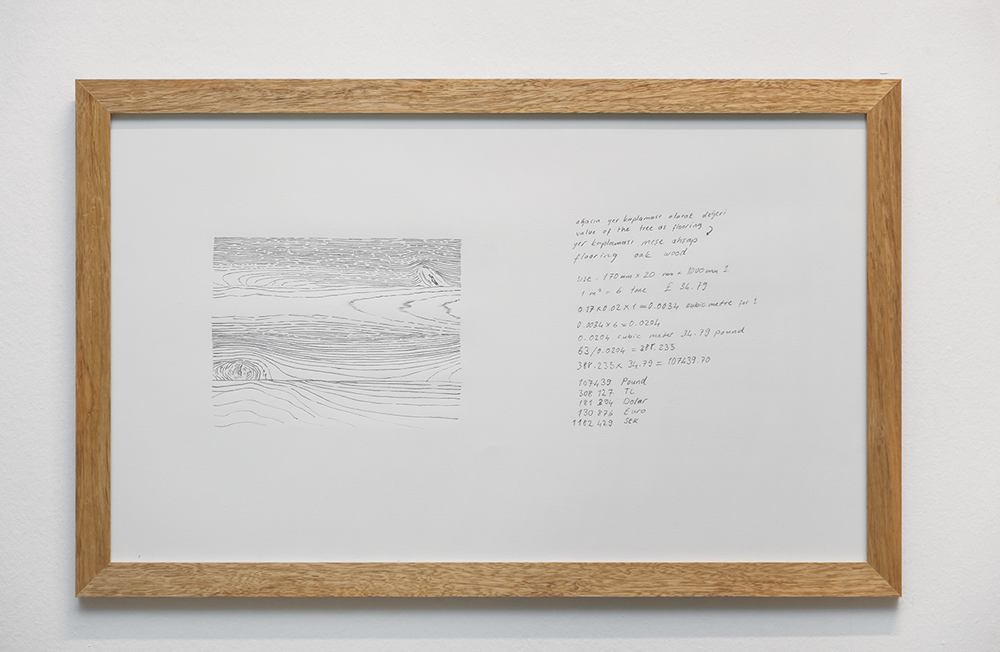 ağacın yer kaplaması olarak değeri
value of the tree as flooring
yer kaplaması meşe ahşap
flooring oak wood
size - 170mm x 20 mm x 1000mm
1 m² = 6 tane £ 34.79
0.17 x 0.02 x 1 = 0.0034 cubic metre for 1
0.0034 x 6 = 0.0204
0.0204 cubic meter 34.79 pound
63/0.0204 = 388.235
388.235 x 34.79 = 107439.70
107439 Pound
308 127 TL
181 334 Dolar
130 876 Euro
1182 429 SEK